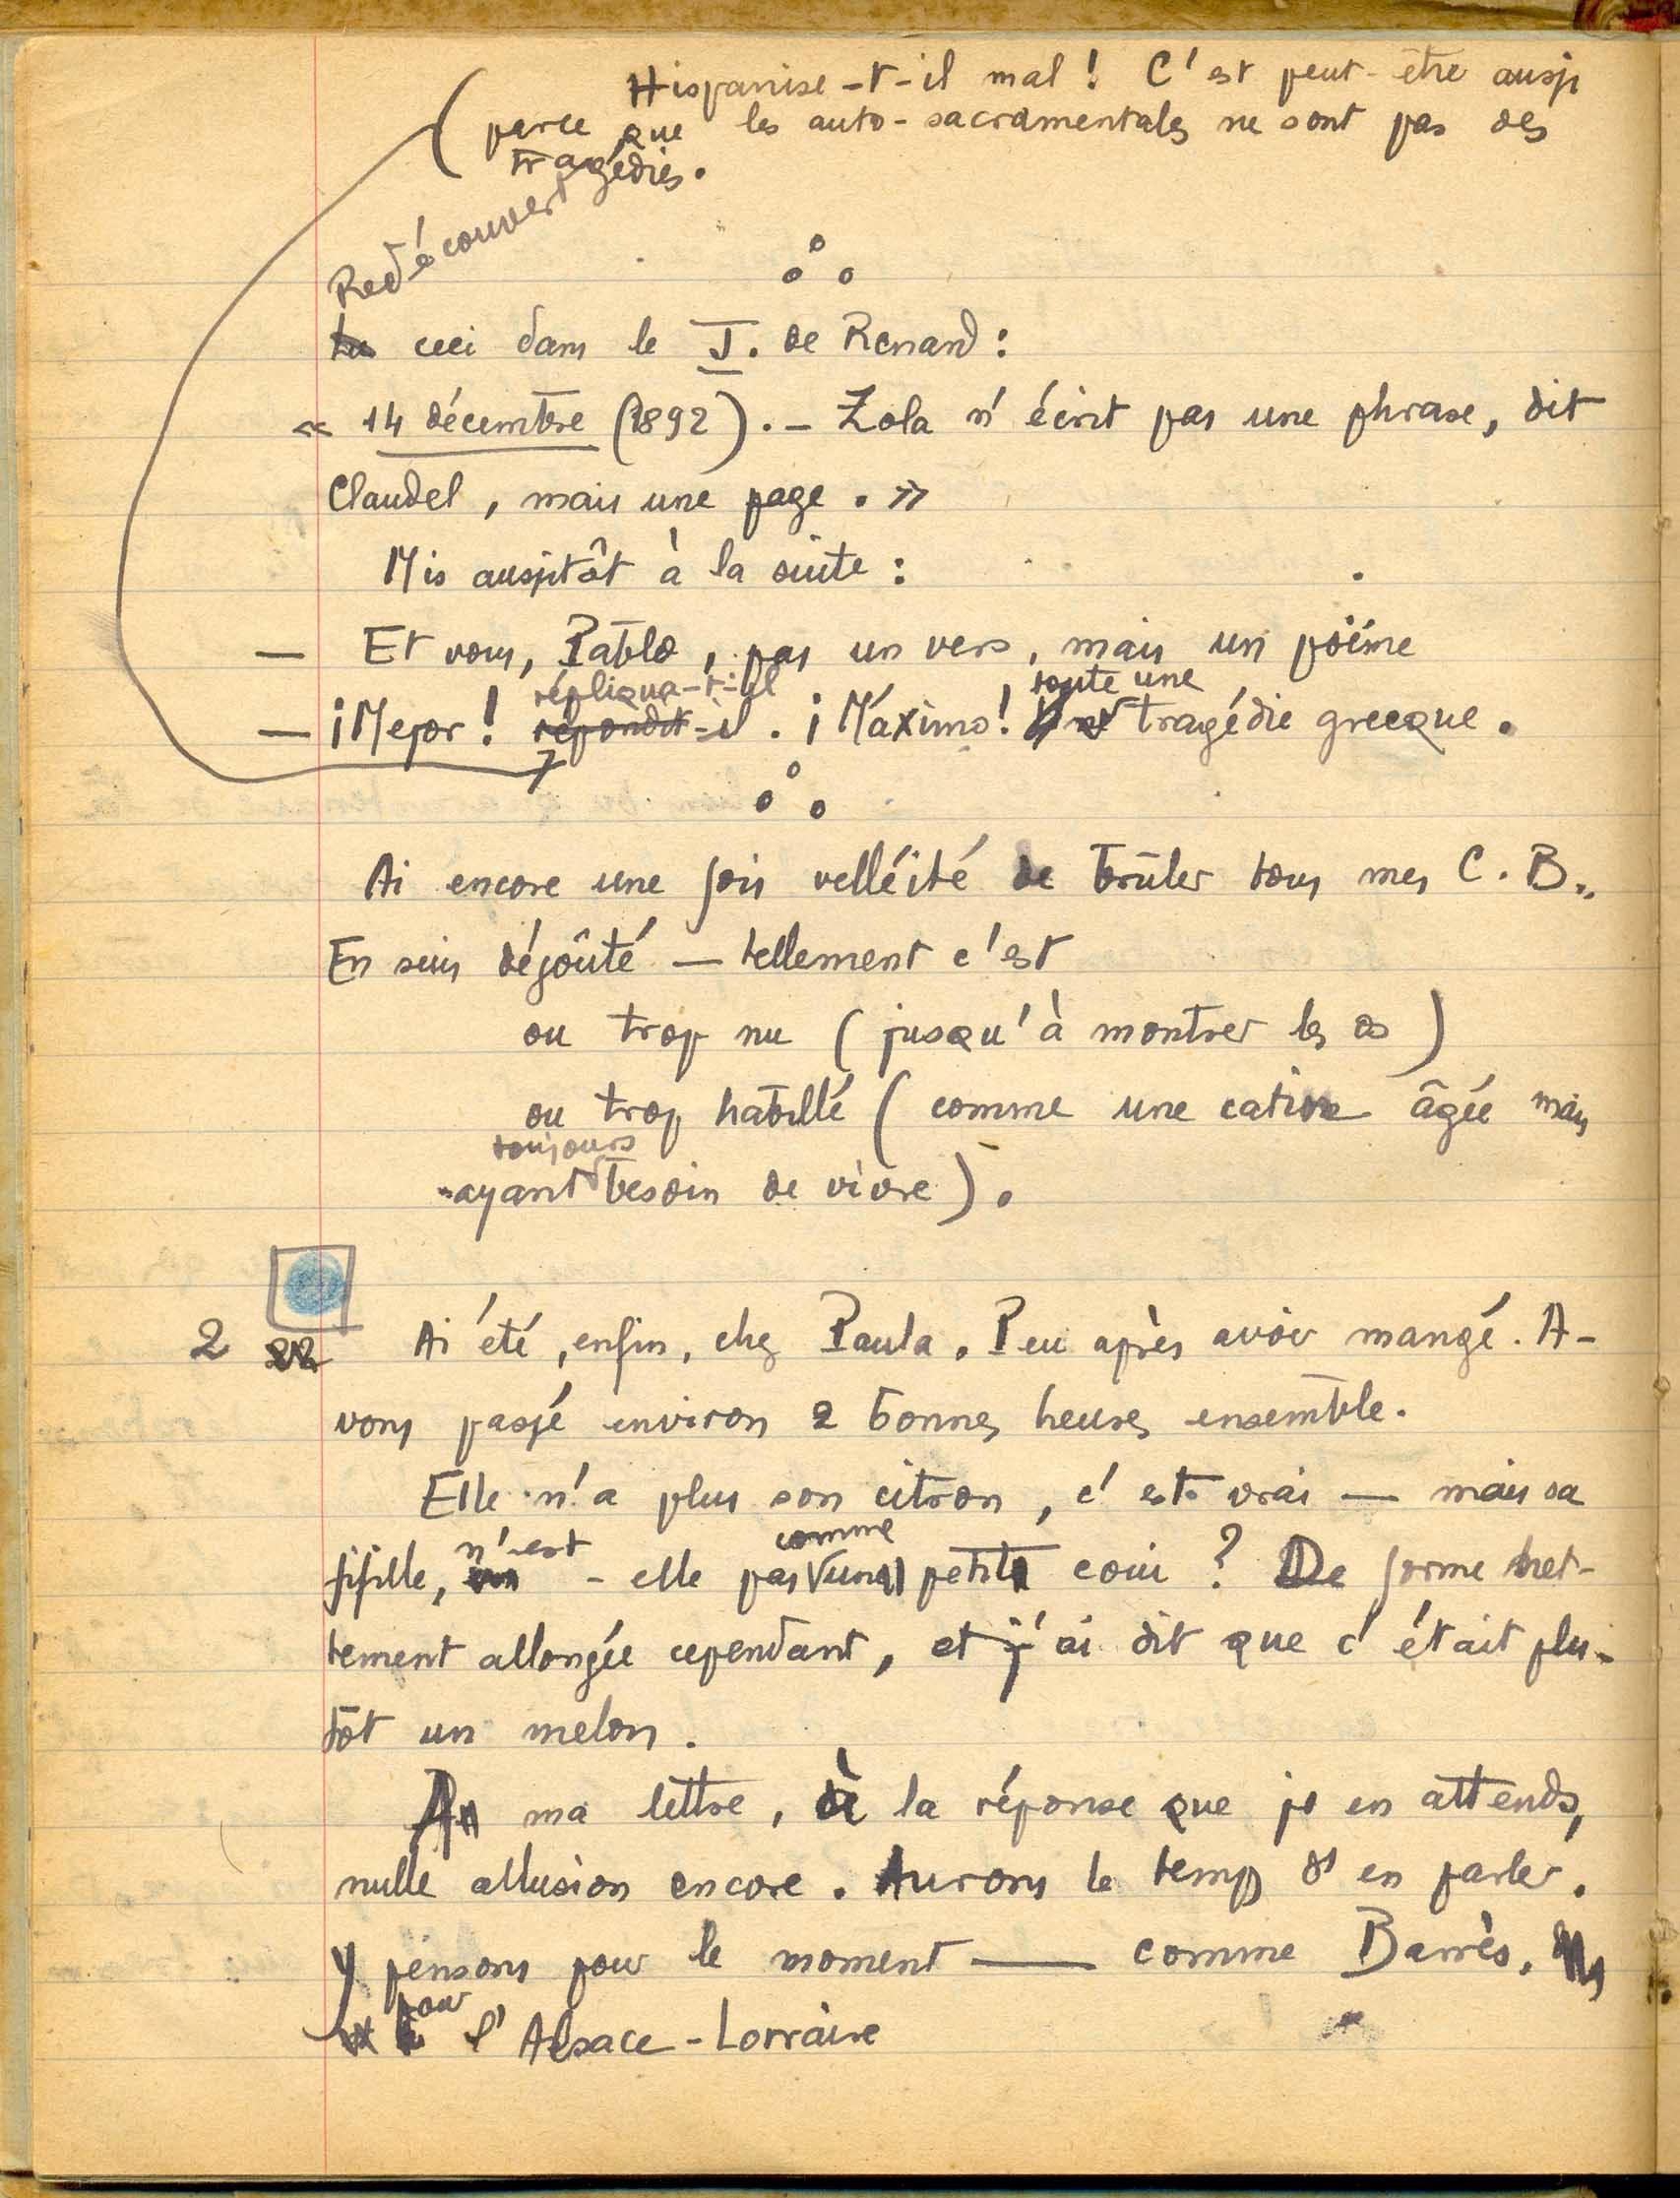 Hispanise-t-il mal ! C'est peut-être aussi
( parce que les auto-sacramentales ne sont pas des
tragédies.
Redécouvert
lu ceci dans le J. de Renard :
« 14 décembre (1892). — Zola n'écrit pas une phrase, dit
Claudel, mais une page. »
Mis aussitôt à la suite :
— Et vous, Pablo, pas un vers, mais un poëme
répliqua-t-il toute une
— ¡Mejor! répondit-il. ¡Máximo! Une tragédie grecque.
Ai encore une fois velléité de brûler tous mes C. B..
En suis dégoûté — tellement c'est
ou trop nu (jusqu'à montrer les os)
ou trop habillé (comme une catin âgée mais
toujours
ayant besoin de vivre).
2 22 Ai été, enfin, chez Paula. Peu après avoir mangé. A-
vons passé environ 2 bonnes heures ensemble.
Elle n'a plus son citron, c'est vrai — mais sa
n'est comme
fifille, - elle pas un petit coui ? De forme net-
tement allongée cependant, et j'ai dit que c'était plu-
tôt un melon.
A ma lettre, à la réponse que je en attends,
nulle allusion encore. Aurons le temps d'en parler.
Y pensons pour le moment — comme Barrès,
pour
l'Alsace-Lorraine